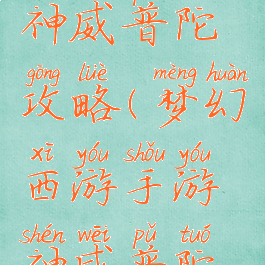 神威普陀
gōng lüè mèng huàn
攻略(梦幻
xī yóu shǒu yóu
西游手游
shén wēi pǔ tuó
神威普陀